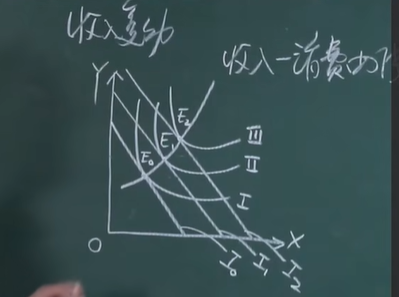 收入变动
收入-消费曲
Y
E₂
E₁
E₀
III
II
I
O
X
I₀
I₁
I₂